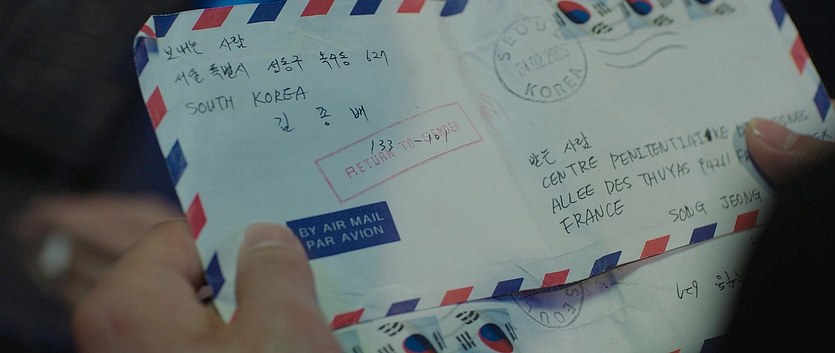 보내는 사람
서울 특별시 선동구 녹수동 627
SOUTH KOREA
김 종 배
133-701
RETURN TO SENDER
BY AIR MAIL
PAR AVION
SEOUL
04.02.2005
KOREA
받는 사람
CENTRE PENITENTIAIRE
ALLEE DES THUYAS 94261
FRANCE
SONG JEONG
627